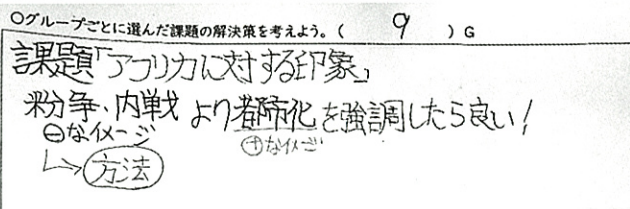 ○グループごとに選んだ課題の解決策を考えよう。( 9 )G
課題「アフリカに対する印象」
紛争、内戦 より都市化を強調したら良い!
⊖なイメージ
⊕なイメージ
↳方法